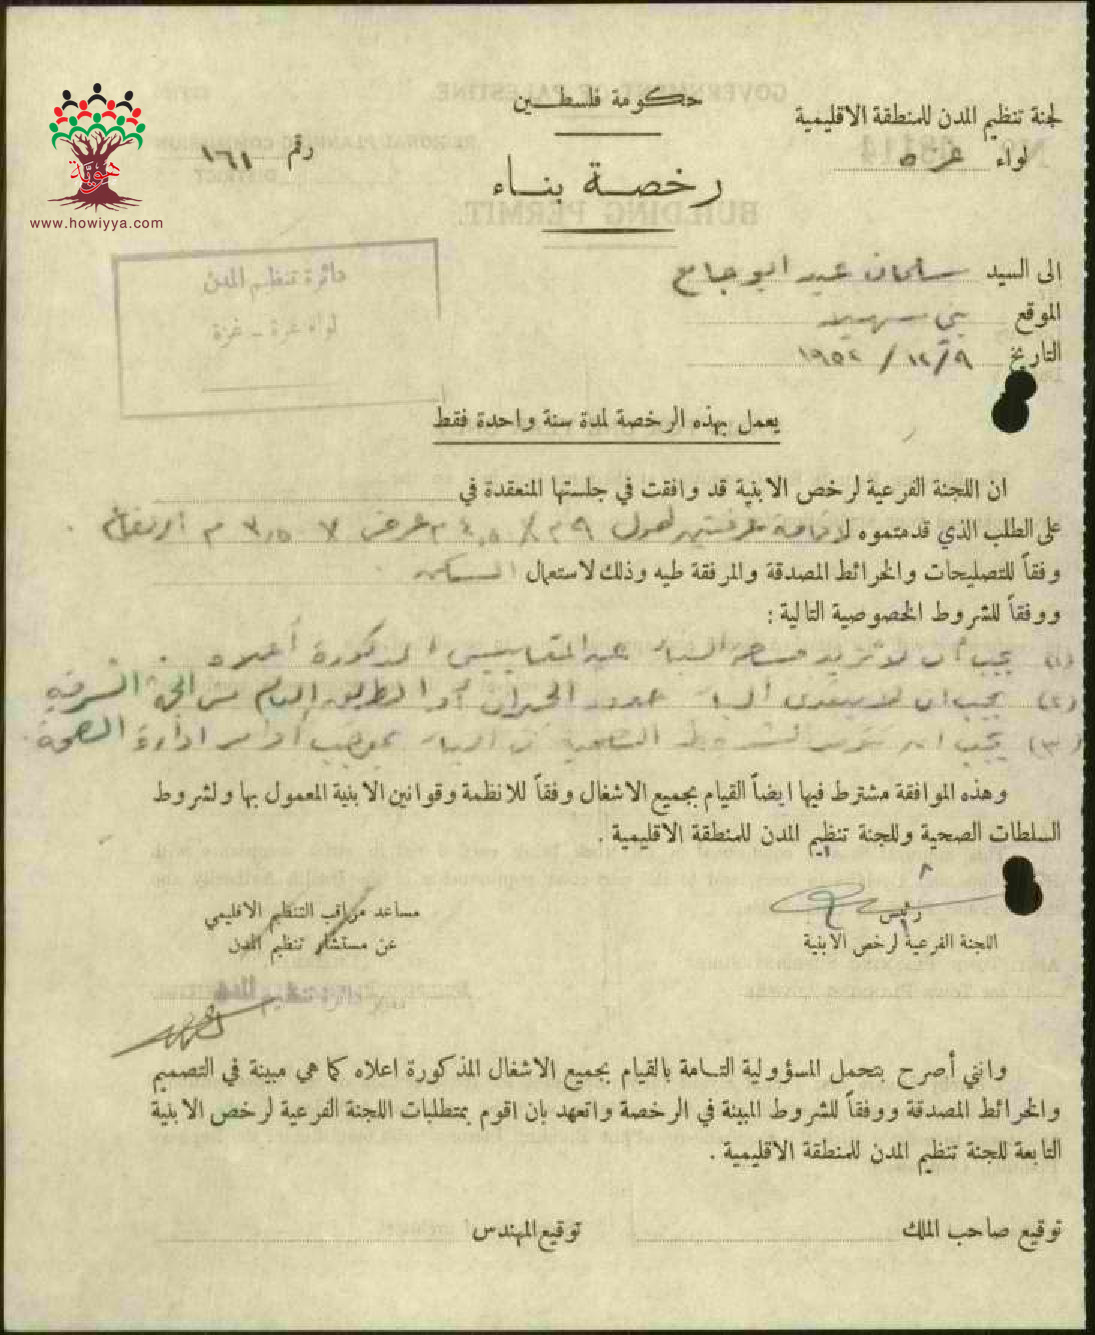 حكومة فلسطين
لجنة تنظيم المدن للمنطقة الاقليمية
لواء غزه
رقم ١٦١
رخصة بناء
هويّة
www.howiyya.com
دائرة تنظيم المدن
لواء غزة - غزة
الى السيد سلمان عيد ابو جامع
الموقع بني سهيلا
التاريخ ١٩٥٢/١٢/٩
يعمل بهذه الرخصة لمدة سنة واحدة فقط
ان اللجنة الفرعية لرخص الابنية قد وافقت في جلستها المنعقدة في
على الطلب الذي قدمتموه لاقامة غرفتين طول ٩ م × ٤,٥ م عرض × ٣,٥ م ارتفاع .
وفقاً للتصليحات والخرائط المصدقة والمرفقة طيه وذلك لاستعمال السكن .
ووفقاً للشروط الخصوصية التالية :
(١) يجب أن لا تزيد مساحة البناء عن المقاييس المذكورة أعلاه .
(٢) يجب ان لا يتعدى البناء حدود الجيران أو الطريق العام من الجهة الشرقية
(٣) يجب ان تتوفر الشروط الصحية في البناء بموجب أوامر ادارة الصحة .
وهذه الموافقة مشترط فيها ايضاً القيام بجميع الاشغال وفقاً للانظمة وقوانين الابنية المعمول بها ولشروط
السلطات الصحية وللجنة تنظيم المدن للمنطقة الاقليمية .
رئيس
اللجنة الفرعية لرخص الابنية
مساعد مراقب التنظيم الاقليمي
عن مستشار تنظيم المدن
دائرة تنظيم المدن
وانني أصرح بتحمل المسؤولية التامة بالقيام بجميع الاشغال المذكورة اعلاه كما هي مبينة في التصميم
والخرائط المصدقة ووفقاً للشروط المبينة في الرخصة واتعهد بان اقوم بمتطلبات اللجنة الفرعية لرخص الابنية
التابعة للجنة تنظيم المدن للمنطقة الاقليمية .
توقيع صاحب الملك
توقيع المهندس